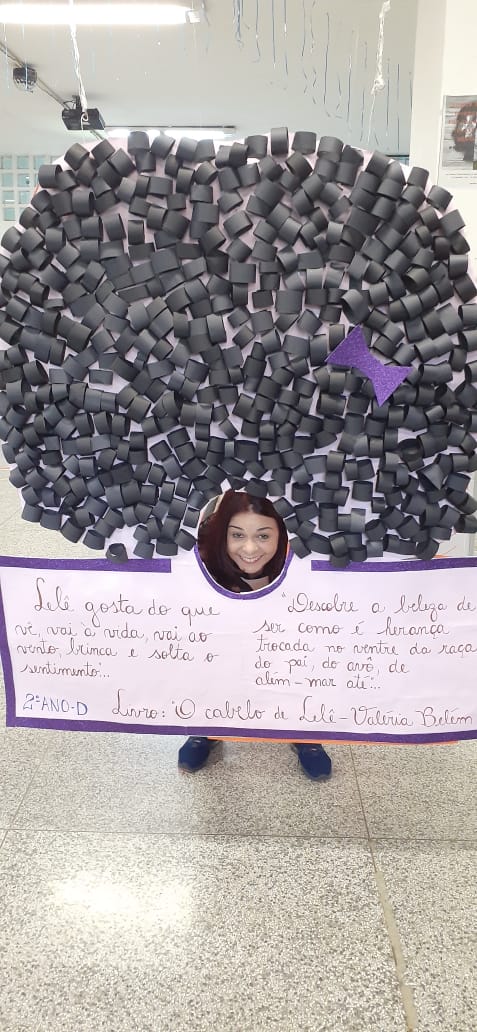 Lelê gosta do que
vê, vai à vida, vai ao
vento, brinca e solta o
sentimento"...
"Descobre a beleza de
ser como é herança
trocada no ventre da raça
do pai, do avô, de
além-mar até"...
2º ANO-D
Livro: "O cabelo de Lelê - Valéria Belém